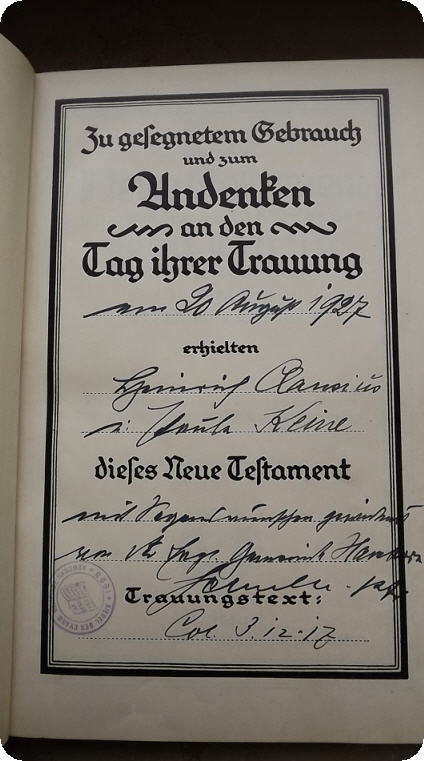 Zu gesegnetem Gebrauch
und zum
Andenken
an den
Tag ihrer Trauung
am 20 August 1927
erhielten
Heinrich Clausius
u. Paula Keine
dieses Neue Testament
mit Segenswünschen gewidmet
von der Evgl. Gemeinde
Trauungstext:
Col. 3.12-17